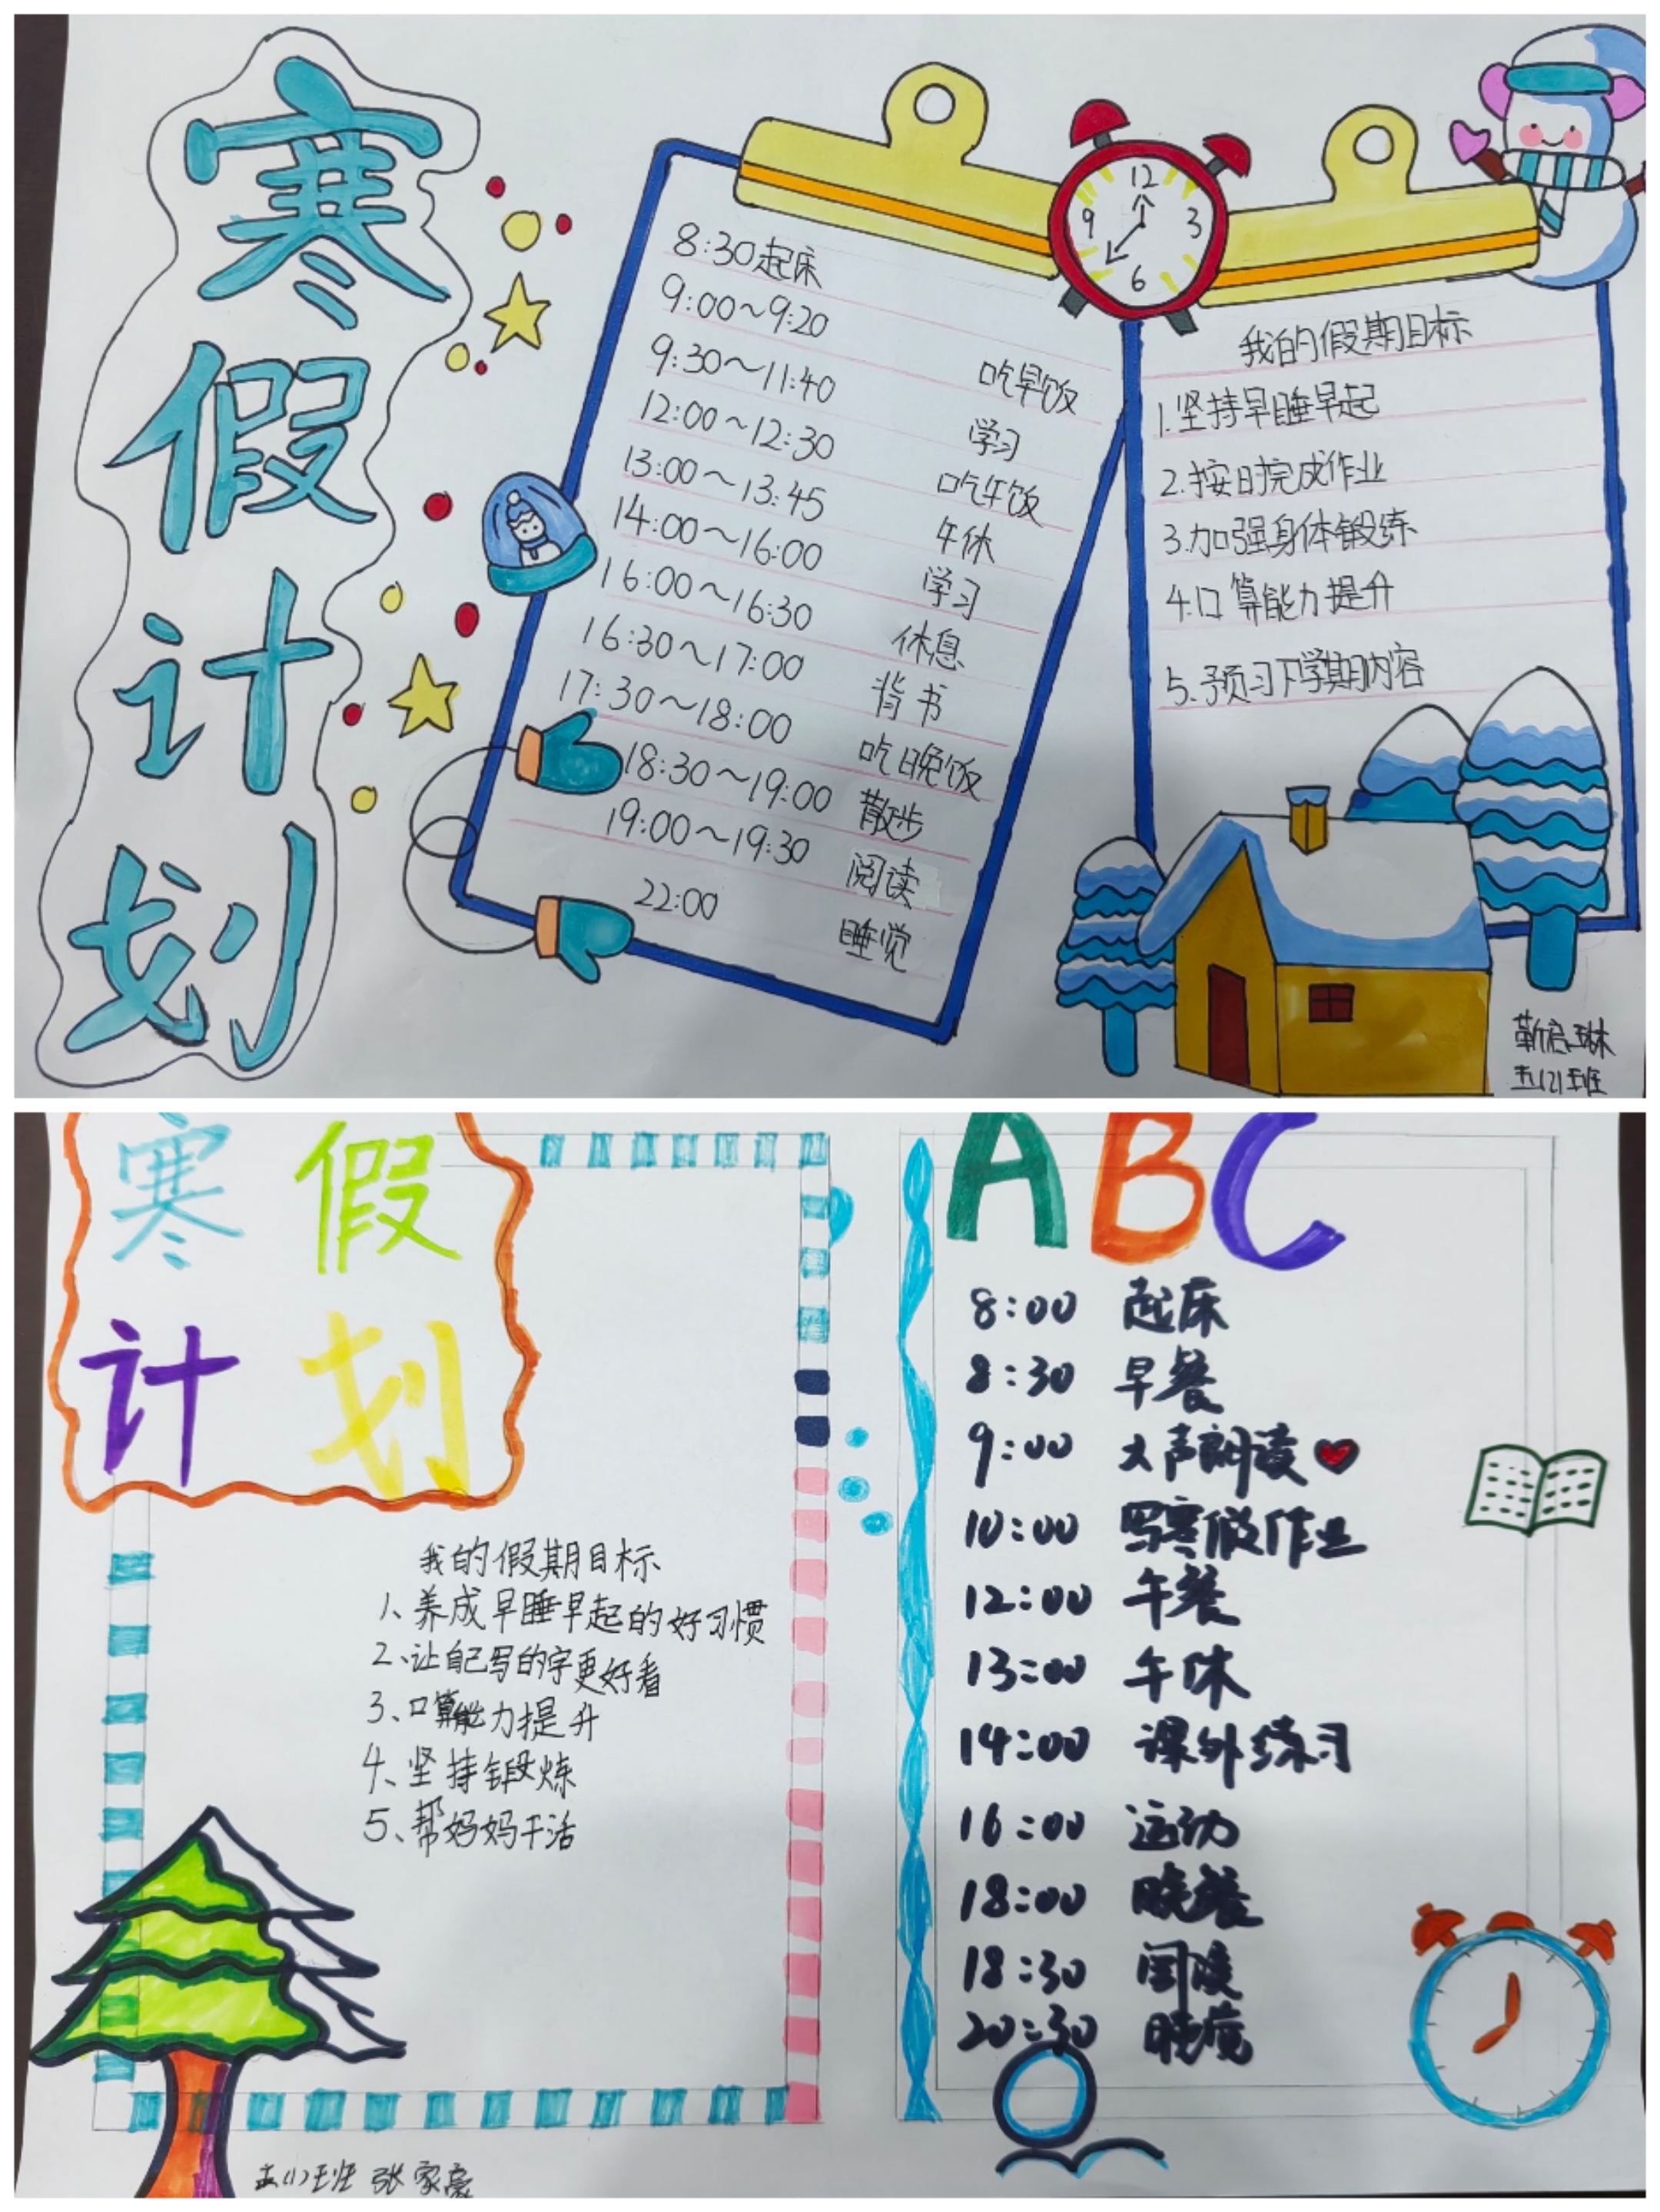 寒假计划
8:30起床
9:00～9:20 吃早饭
9:30～11:40 学习
12:00～12:30 吃午饭
13:00～13:45 午休
14:00～16:00 学习
16:00～16:30 休息
16:30～17:00 背书
17:30～18:00 吃晚饭
18:30～19:00 散步
19:00～19:30 阅读
22:00 睡觉
12
3
6
9
我的假期目标
1.坚持早睡早起
2.按时完成作业
3.加强身体锻炼
4.口算能力提升
5.预习下学期内容
靳启琳
五(2)班
寒假
计划
我的假期目标
1、养成早睡早起的好习惯
2、让自己写的字更好看
3、口算能力提升
4、坚持锻炼
5、帮妈妈干活
五(1)班 张家豪
ABC
8:00 起床
8:30 早餐
9:00 大声朗读
10:00 写寒假作业
12:00 午餐
13:00 午休
14:00 课外练习
16:00 运动
18:00 晚餐
18:30 阅读
20:30 睡觉